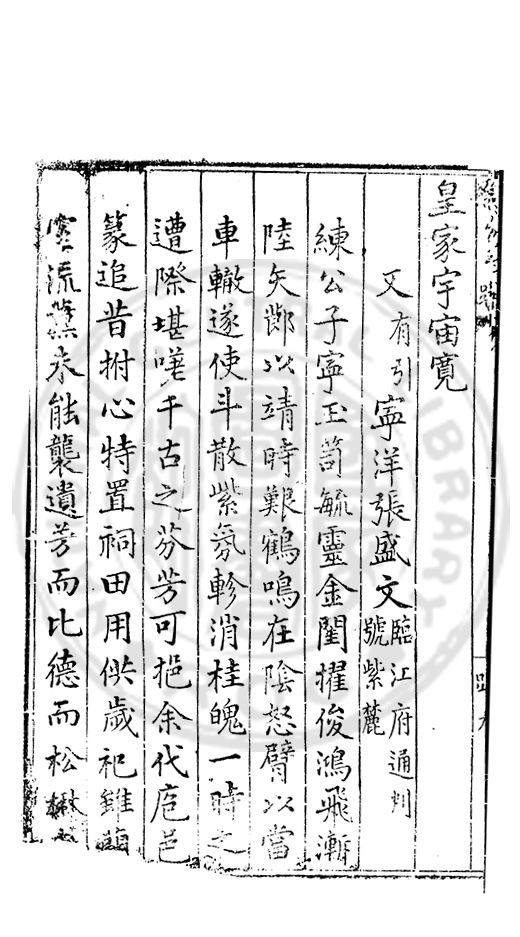 皇家宇宙寬
又有引寧洋張盛文臨江府通判號紫麓
練公子寧玉笥毓靈金閨擢俊鴻飛漸
陸矢鄧以靖時艱鶴鳴在陰怒臂以當
車轍遂使斗散紫氛軫消桂魄一時之
遭際堪嗟千古之芬芳可挹余代庖邑
篆追昔拊心特置祠田用供歲祀雖蘋
流藻未能襲遺芳而比德而松楸